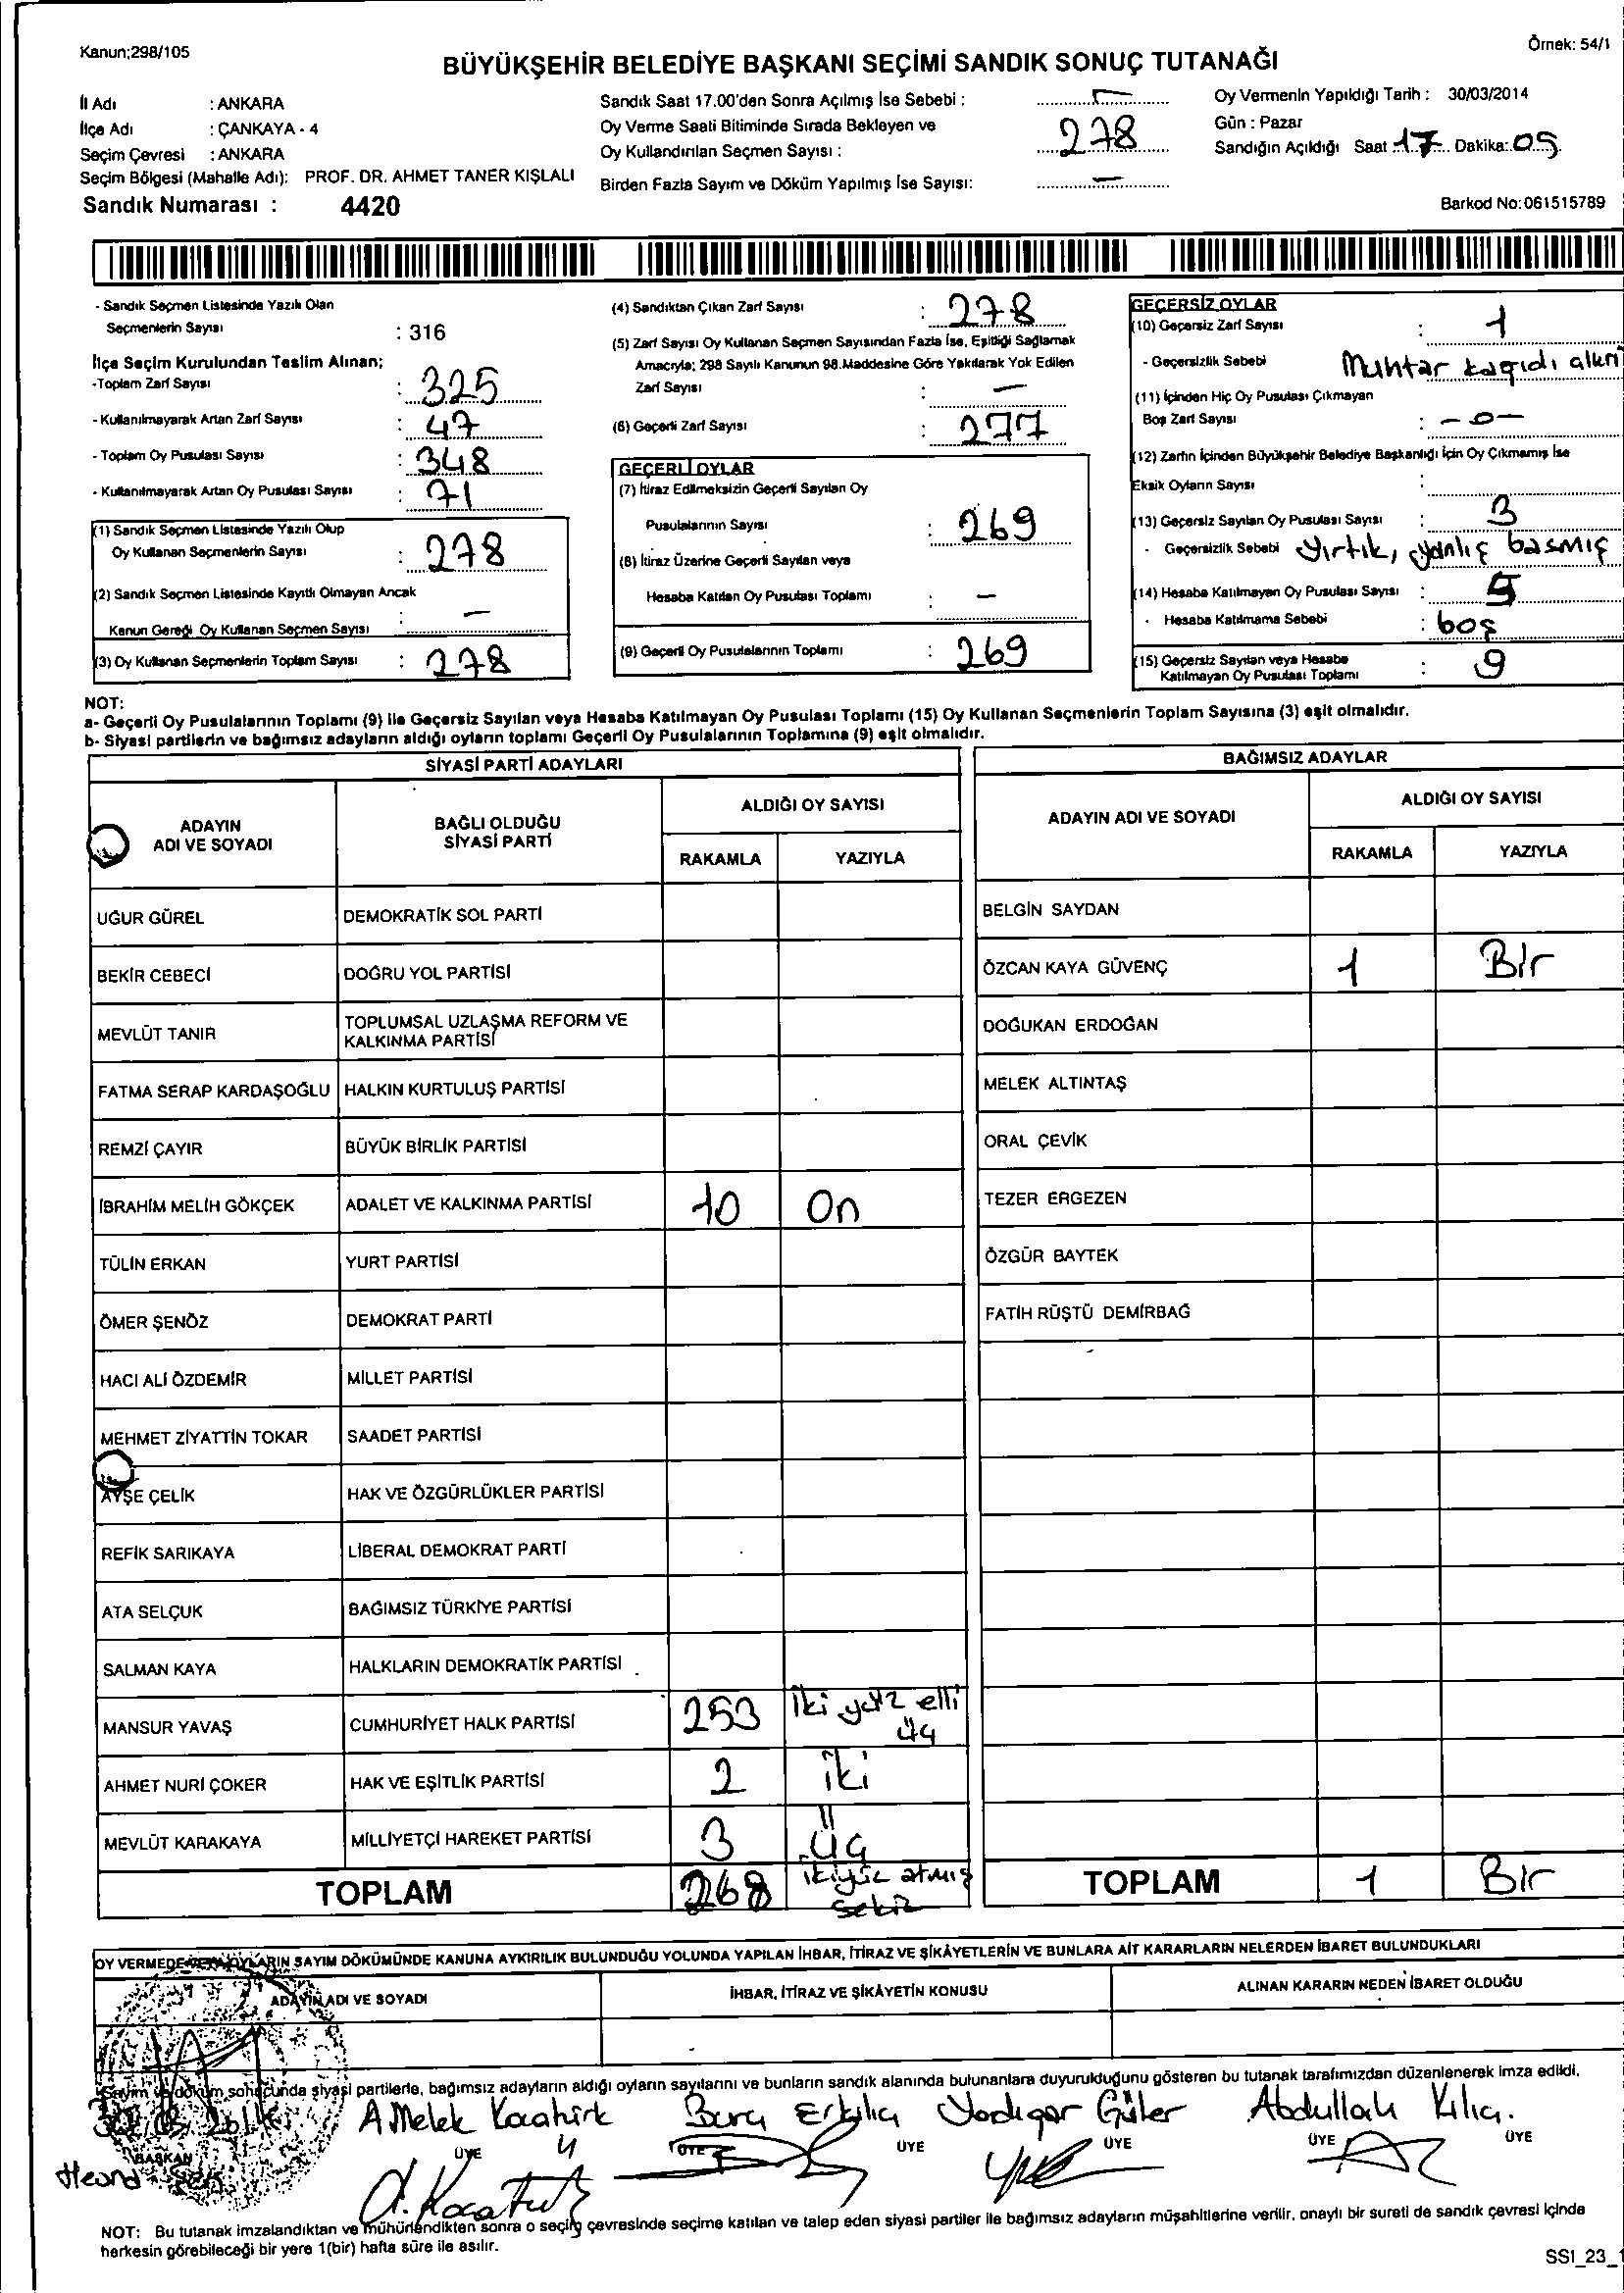 Kanun;298/105
Örnek: 54/1
BÜYÜKŞEHİR BELEDİYE BAŞKANI SEÇİMİ SANDIK SONUÇ TUTANAĞI
İl Adı : ANKARA
İlçe Adı : ÇANKAYA - 4
Seçim Çevresi : ANKARA
Seçim Bölgesi (Mahalle Adı): PROF. DR. AHMET TANER KIŞLALI
Sandık Numarası : 4420
Sandık Saat 17.00'den Sonra Açılmış İse Sebebi : —
Oy Verme Saati Bitiminde Sırada Bekleyen ve
Oy Kullandırılan Seçmen Sayısı : 278
Birden Fazla Sayım ve Döküm Yapılmış İse Sayısı: —
Oy Vermenin Yapıldığı Tarih : 30/03/2014
Gün : Pazar
Sandığın Açıldığı Saat 17 Dakika: 05
Barkod No:061515789
- Sandık Seçmen Listesinde Yazılı Olan
Seçmenlerin Sayısı : 316
İlçe Seçim Kurulundan Teslim Alınan;
-Toplam Zarf Sayısı : 325
- Kullanılmayarak Artan Zarf Sayısı : 47
- Toplam Oy Pusulası Sayısı : 348
- Kullanılmayarak Artan Oy Pusulası Sayısı : 71
(1) Sandık Seçmen Listesinde Yazılı Olup
Oy Kullanan Seçmenlerin Sayısı : 278
(2) Sandık Seçmen Listesinde Kayıtlı Olmayan Ancak
Kanun Gereği Oy Kullanan Seçmen Sayısı : —
(3) Oy Kullanan Seçmenlerin Toplam Sayısı : 278
(4) Sandıktan Çıkan Zarf Sayısı : 278
(5) Zarf Sayısı Oy Kullanan Seçmen Sayısından Fazla İse, Eşitliği Sağlamak
Amacıyla; 298 Sayılı Kanunun 98.Maddesine Göre Yakılarak Yok Edilen
Zarf Sayısı : —
(6) Geçerli Zarf Sayısı : 277
GEÇERLİ OYLAR
(7) İtiraz Edilmeksizin Geçerli Sayılan Oy
Pusulalarının Sayısı : 269
(8) İtiraz Üzerine Geçerli Sayılan veya
Hesaba Katılan Oy Pusulası Toplamı : —
(9) Geçerli Oy Pusulalarının Toplamı : 269
GEÇERSİZ OYLAR
(10) Geçersiz Zarf Sayısı : 1
- Geçersizlik Sebebi Muhtar kağıdı
(11) İçinden Hiç Oy Pusulası Çıkmayan
Boş Zarf Sayısı : -0-
(12) Zarfın İçinden Büyükşehir Belediye Başkanlığı İçin Oy Çıkmamış İse
Eksik Oyların Sayısı :
(13) Geçersiz Sayılan Oy Pusulası Sayısı : 3
- Geçersizlik Sebebi Yırtık, yanlış basmış
(14) Hesaba Katılmayan Oy Pusulası Sayısı : 5
- Hesaba Katılmama Sebebi : boş
(15) Geçersiz Sayılan veya Hesaba
Katılmayan Oy Pusulası Toplamı : 9
NOT:
a- Geçerli Oy Pusulalarının Toplamı (9) ile Geçersiz Sayılan veya Hesaba Katılmayan Oy Pusulası Toplamı (15) Oy Kullanan Seçmenlerin Toplam Sayısına (3) eşit olmalıdır.
b- Siyasi partilerin ve bağımsız adayların aldığı oyların toplamı Geçerli Oy Pusulalarının Toplamına (9) eşit olmalıdır.
SİYASİ PARTİ ADAYLARI
ADAYIN
ADI VE SOYADI
BAĞLI OLDUĞU
SİYASİ PARTİ
ALDIĞI OY SAYISI
RAKAMLA YAZIYLA
UĞUR GÜREL DEMOKRATİK SOL PARTİ
BEKİR CEBECİ DOĞRU YOL PARTİSİ
MEVLÜT TANIR TOPLUMSAL UZLAŞMA REFORM VE
KALKINMA PARTİSİ
FATMA SERAP KARDAŞOĞLU HALKIN KURTULUŞ PARTİSİ
REMZİ ÇAYIR BÜYÜK BİRLİK PARTİSİ
İBRAHİM MELİH GÖKÇEK ADALET VE KALKINMA PARTİSİ 10 On
TÜLİN ERKAN YURT PARTİSİ
ÖMER ŞENÖZ DEMOKRAT PARTİ
HACI ALİ ÖZDEMİR MİLLET PARTİSİ
MEHMET ZİYATTİN TOKAR SAADET PARTİSİ
AYŞE ÇELİK HAK VE ÖZGÜRLÜKLER PARTİSİ
REFİK SARIKAYA LİBERAL DEMOKRAT PARTİ
ATA SELÇUK BAĞIMSIZ TÜRKİYE PARTİSİ
SALMAN KAYA HALKLARIN DEMOKRATİK PARTİSİ
MANSUR YAVAŞ CUMHURİYET HALK PARTİSİ 253 İki yüz elli
üç
AHMET NURİ ÇOKER HAK VE EŞİTLİK PARTİSİ 2 iki
MEVLÜT KARAKAYA MİLLİYETÇİ HAREKET PARTİSİ 3 Üç
TOPLAM 268 ikiyüz atmış
sekiz
BAĞIMSIZ ADAYLAR
ADAYIN ADI VE SOYADI
ALDIĞI OY SAYISI
RAKAMLA YAZIYLA
BELGİN SAYDAN
ÖZCAN KAYA GÜVENÇ 1 Bir
DOĞUKAN ERDOĞAN
MELEK ALTINTAŞ
ORAL ÇEVİK
TEZER ERGEZEN
ÖZGÜR BAYTEK
FATİH RÜŞTÜ DEMİRBAĞ
TOPLAM 1 Bir
OY VERMEDE SAYIM DÖKÜMÜNDE KANUNA AYKIRILIK BULUNDUĞU YOLUNDA YAPILAN İHBAR, İTİRAZ VE ŞİKÂYETLERİN VE BUNLARA AİT KARARLARIN NELERDEN İBARET BULUNDUKLARI
ADAYIN ADI VE SOYADI
İHBAR, İTİRAZ VE ŞİKÂYETİN KONUSU
ALINAN KARARIN NEDEN İBARET OLDUĞU
Sayım ve döküm sonucunda siyasi partilerle, bağımsız adayların aldığı oyların sayılarını ve bunların sandık alanında bulunanlara duyurulduğunu gösteren bu tutanak tarafımızdan düzenlenerek imza edildi.
A Melek Burç Erkılıç Yadigar Güler Abdullah Kılıç.
BAŞKAN ÜYE ÜYE ÜYE ÜYE ÜYE ÜYE
NOT: Bu tutanak imzalandıktan ve mühürlendikten sonra o seçim çevresinde seçime katılan ve talep eden siyasi partiler ile bağımsız adayların müşahitlerine verilir, onaylı bir sureti de sandık çevresi içinde
herkesin görebileceği bir yere 1(bir) hafta süre ile asılır.